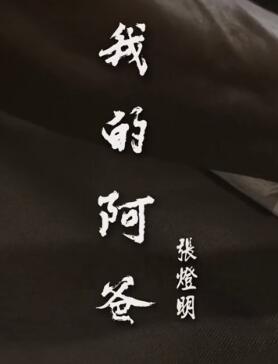 我的阿爸
張燈明